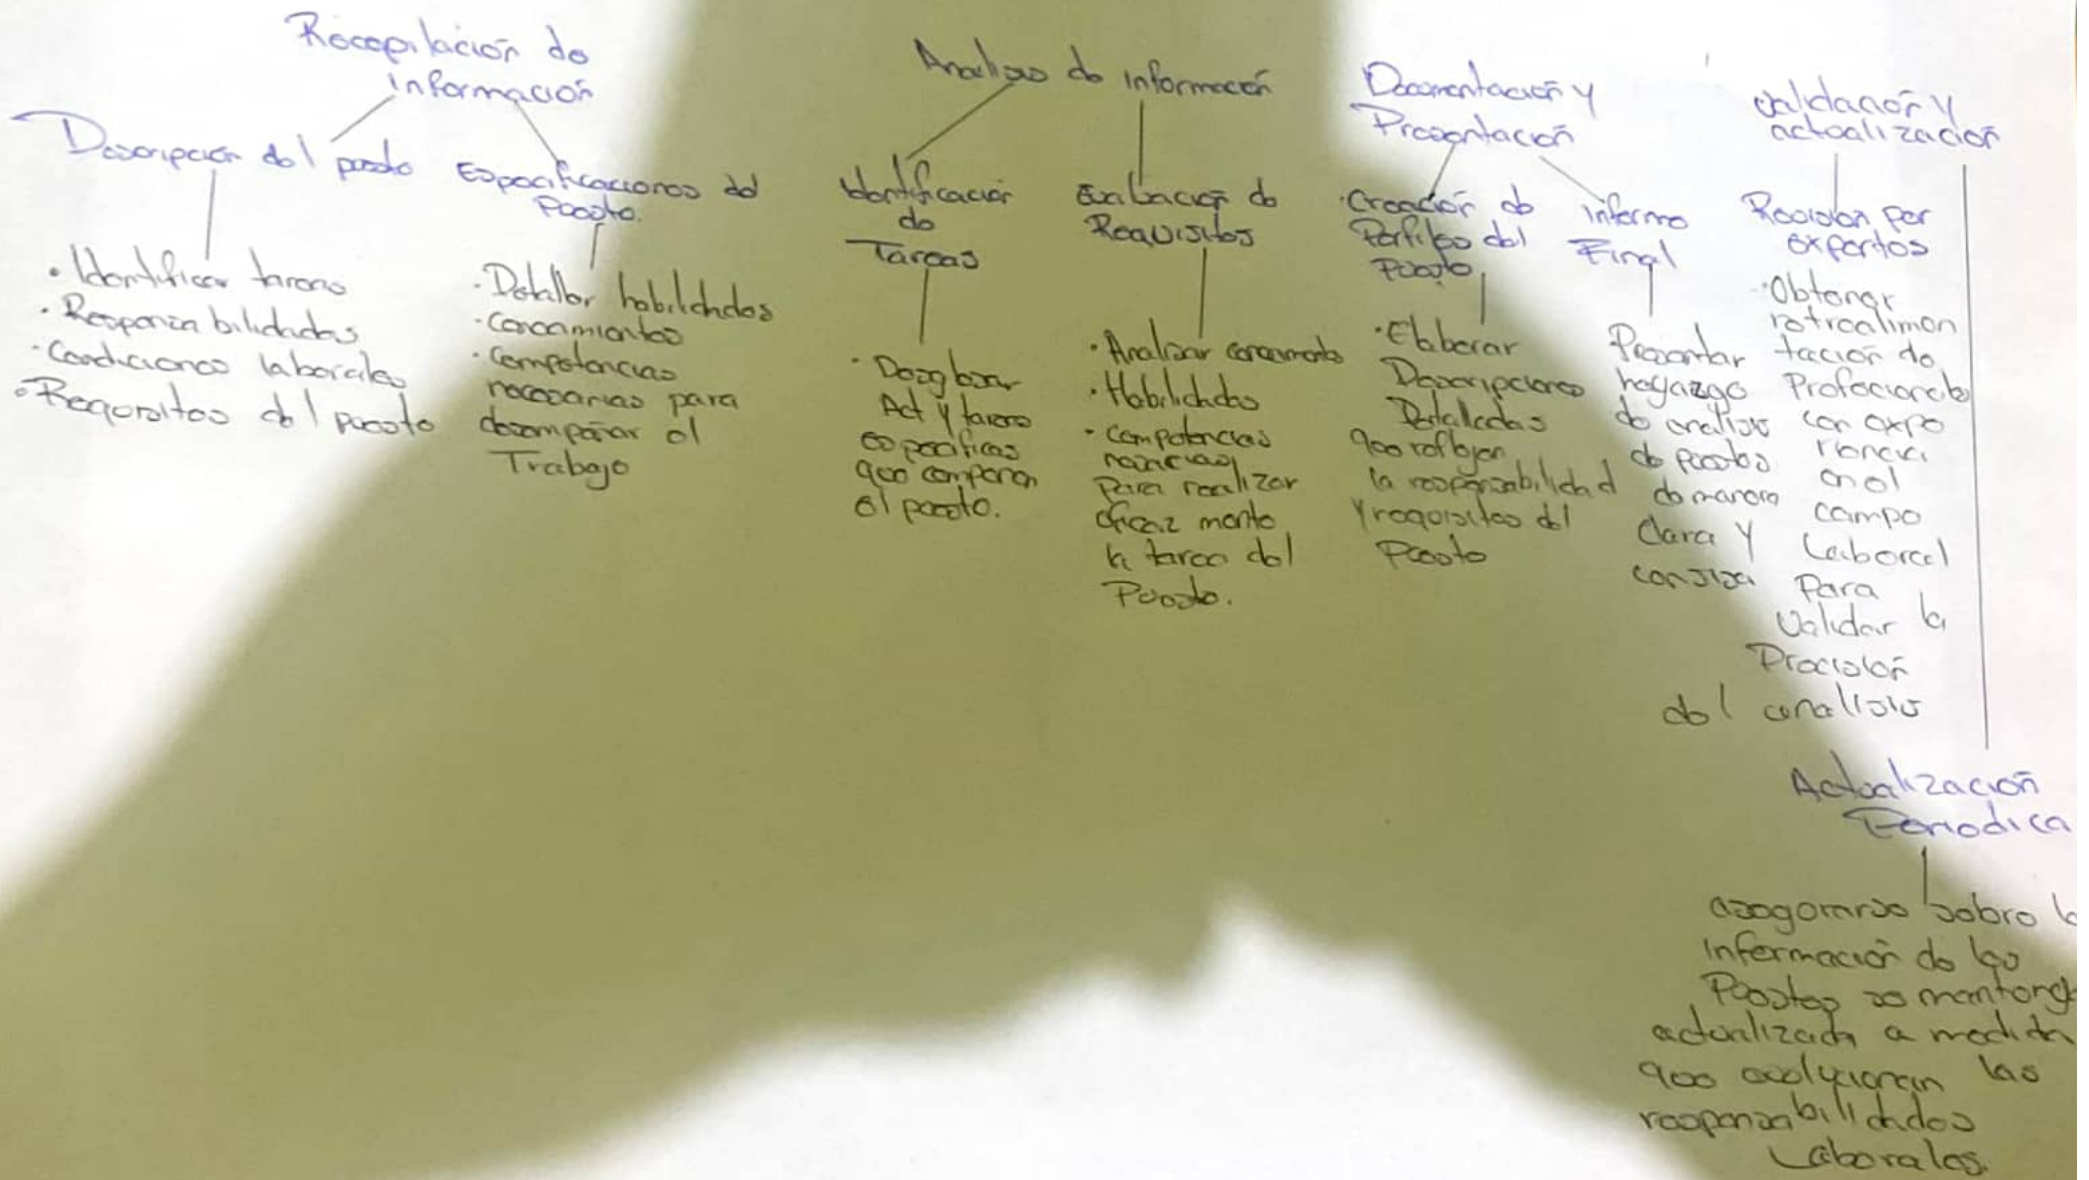 Recopilación de
información
Descripción del puesto
• Identificar tareas
• Responza bilidades
• Condiciones laborales
• Requisitos del puesto
Especificaciones del
Puesto.
• Detallar habilidades
• Conocimientos
• Competencias
necesarias para
desempeñar el
Trabajo
Analisis de información
Identificación
de
Tareas
• Desglosar
Act y tareas
especificas
que componen
el puesto.
Evaluación de
Requisitos
• Analizar conocimiento
• Habilidades
• competencias
para realizar
eficaz mente
la tarea del
Puesto.
Documentación y
Presentación
• Creación de
Perfiles del
Puesto
• Elaborar
Descripciones
Detalladas
que reflejen
la responsabilidad
y requisitos del
Puesto
informe
Final
Presentar
hayazgo
de analisis
de puestos
de manera
Clara y
consiza
validación y
actualización
Revision por
expertos
• Obtener
retroalimen
tación de
Profecionales
con expe
riencia
en el
campo
Laboral
Para
Validar la
Precisión
del analisis
Actualización
Periodica
asegurarse sobre la
información de los
Puestos se mantenga
actualizada a medida
que evolucionan las
responsabilidades
Laborales.